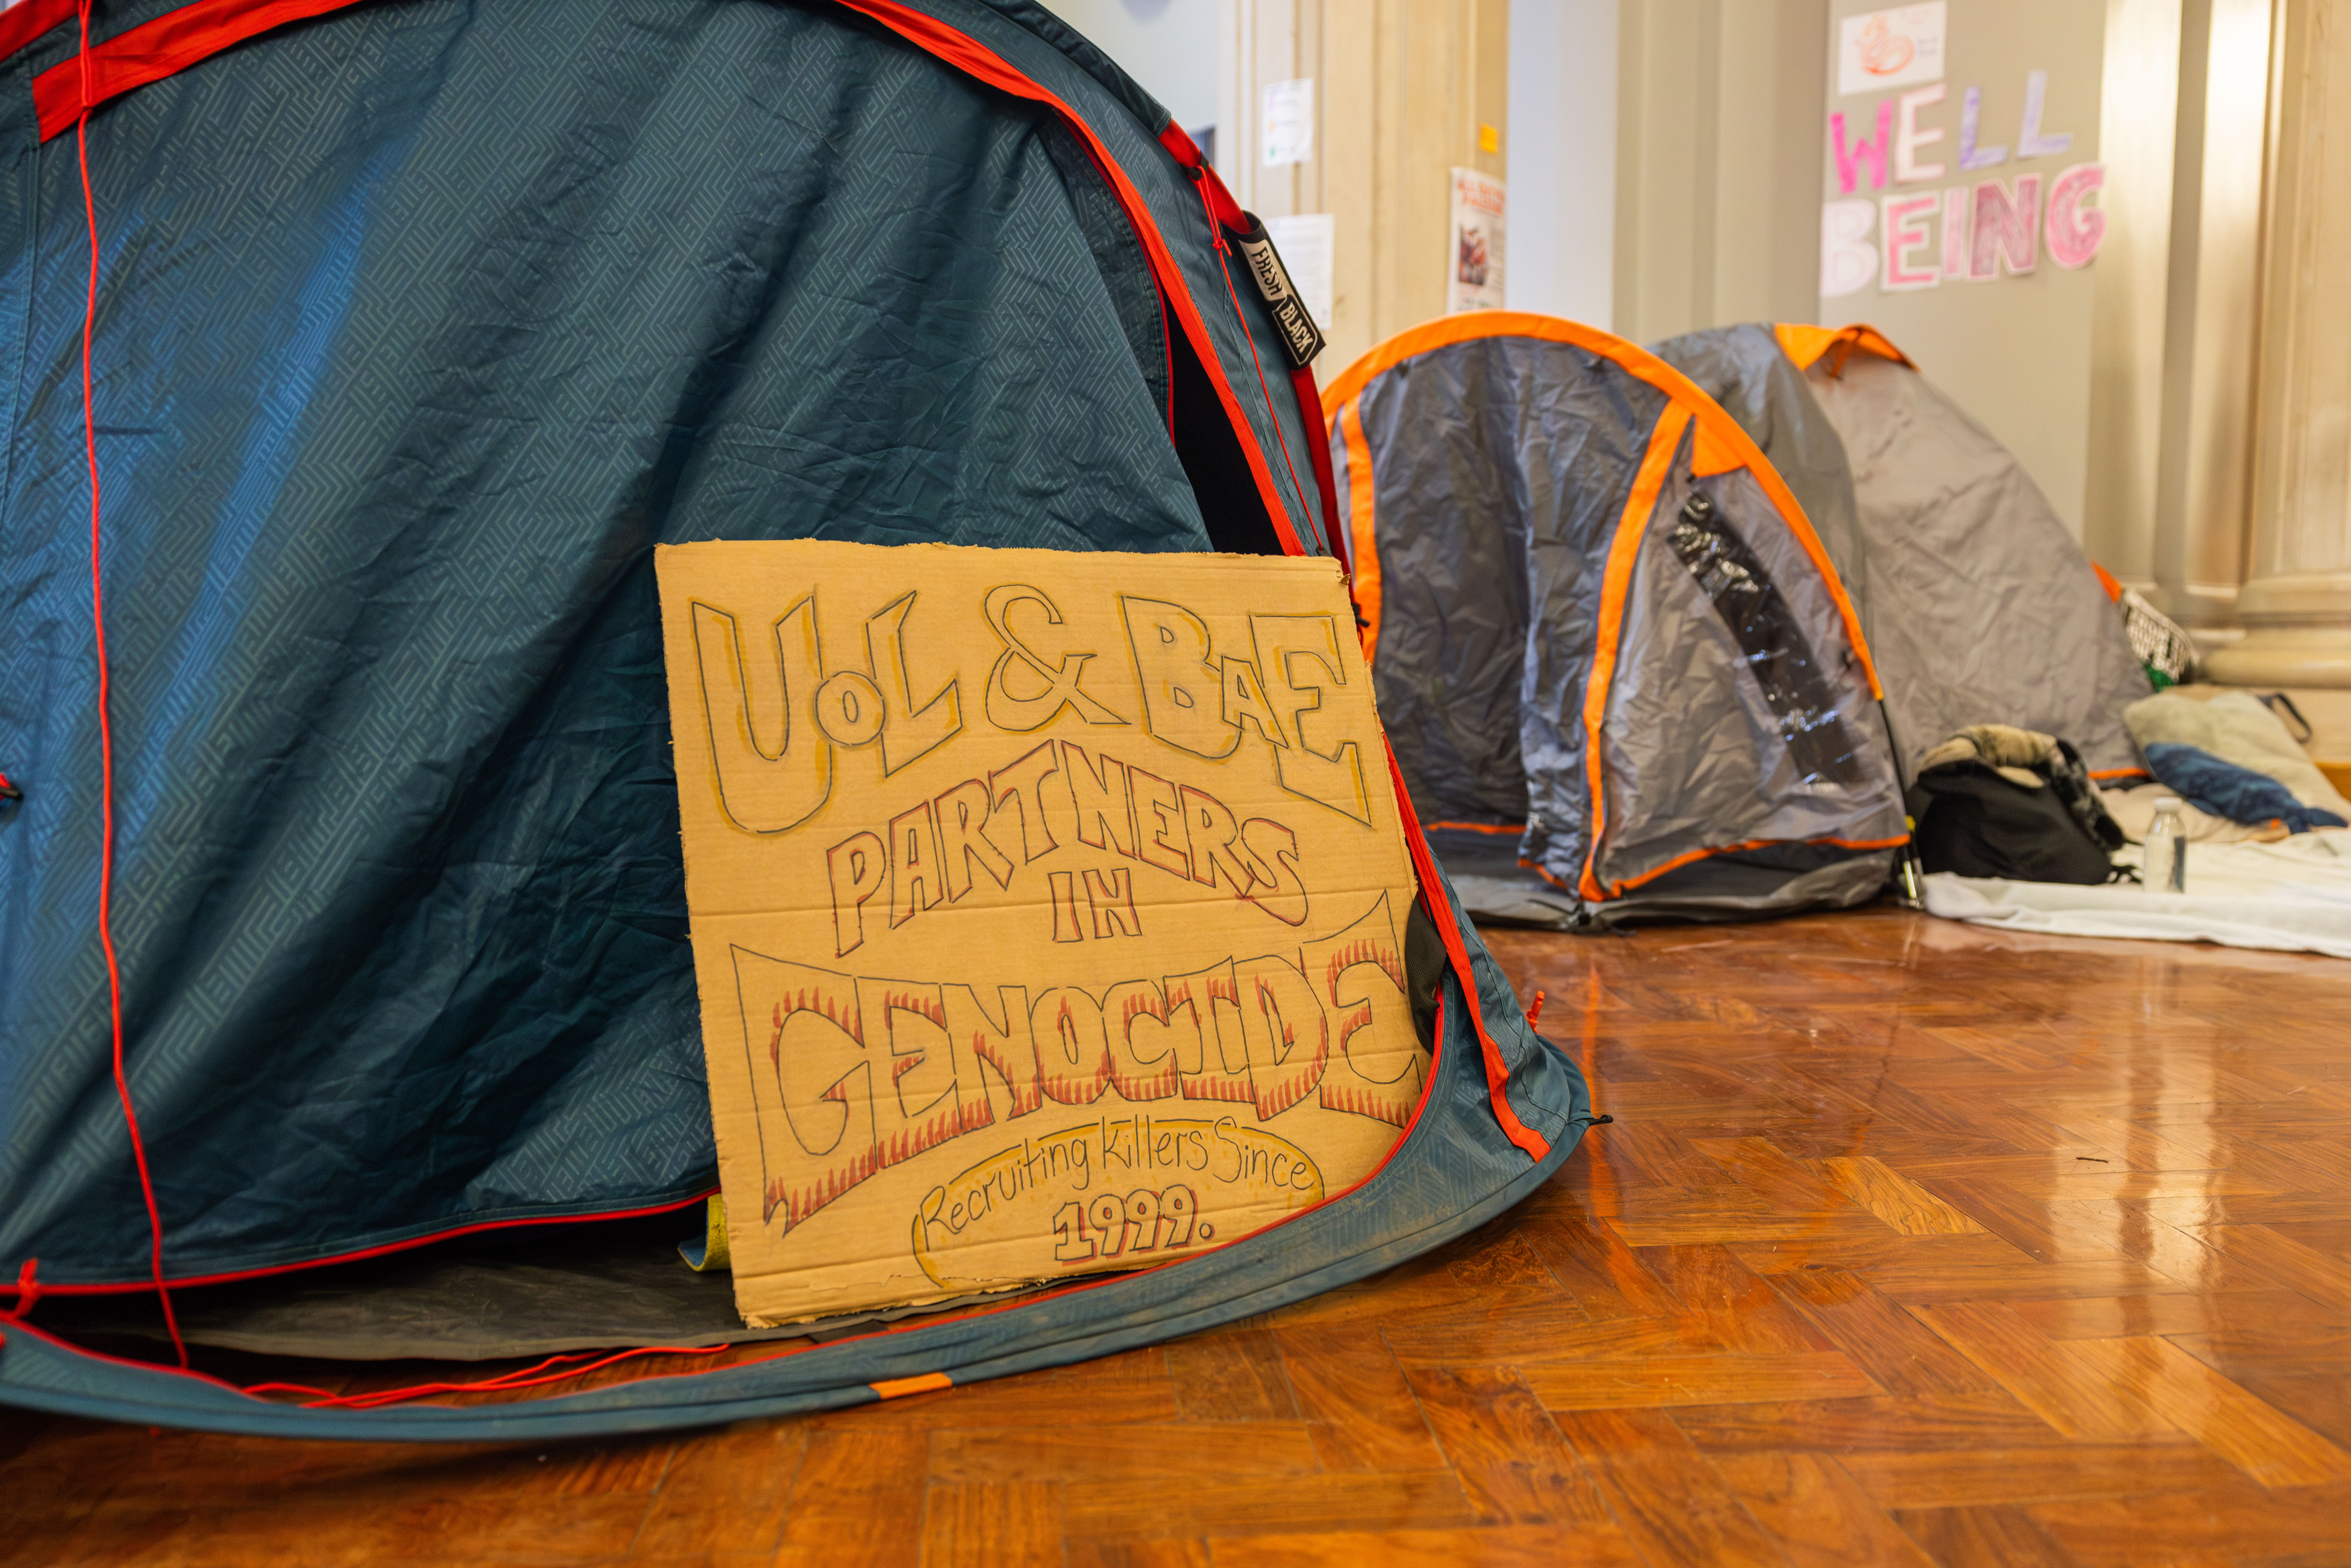 UoL & BAE
PARTNERS
IN
GENOCIDE
Recruiting Killers Since
1999.
FRESH
BLACK
WELL
BEING